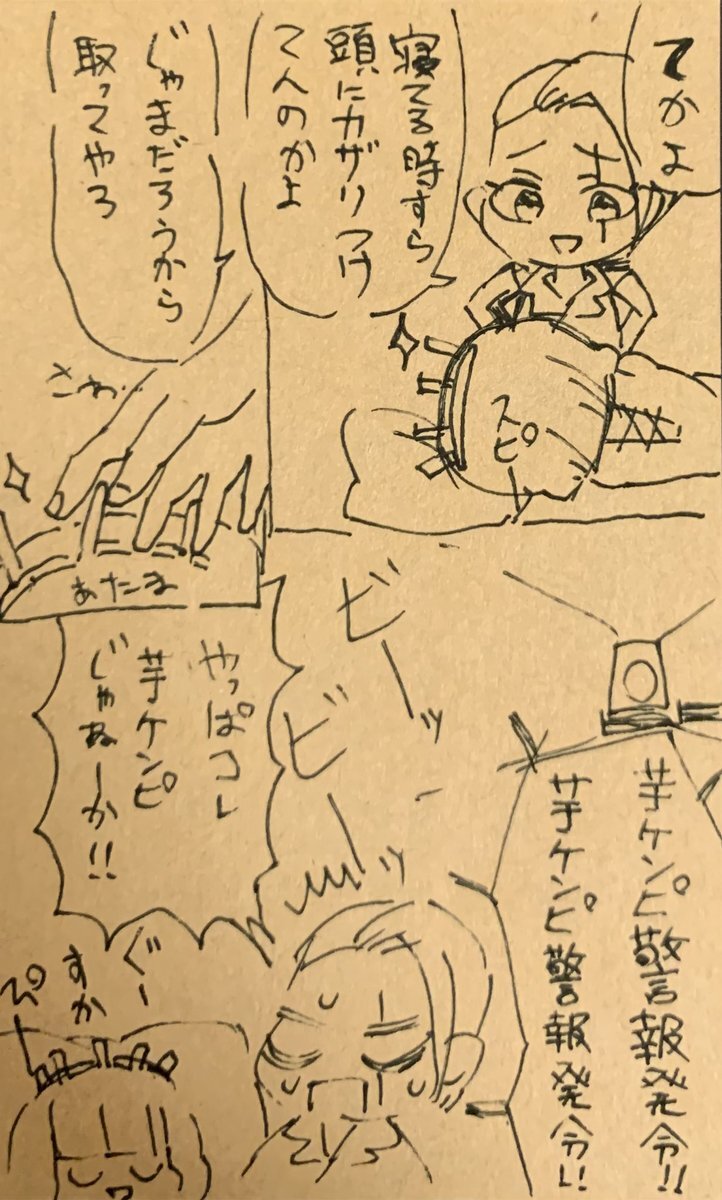 てかよ
寝てる時すら
頭にカザリつけ
てんのかよ
スピ
じゃまだろうから
取ってやろ
さわ…
あたま
芋ケンピ警報発令!!
芋ケンピ警報発令!!
ビーッ
ビーッ
やっぱコレ
芋ケンピ
じゃねーか!!
ぐー
すか
ぴ